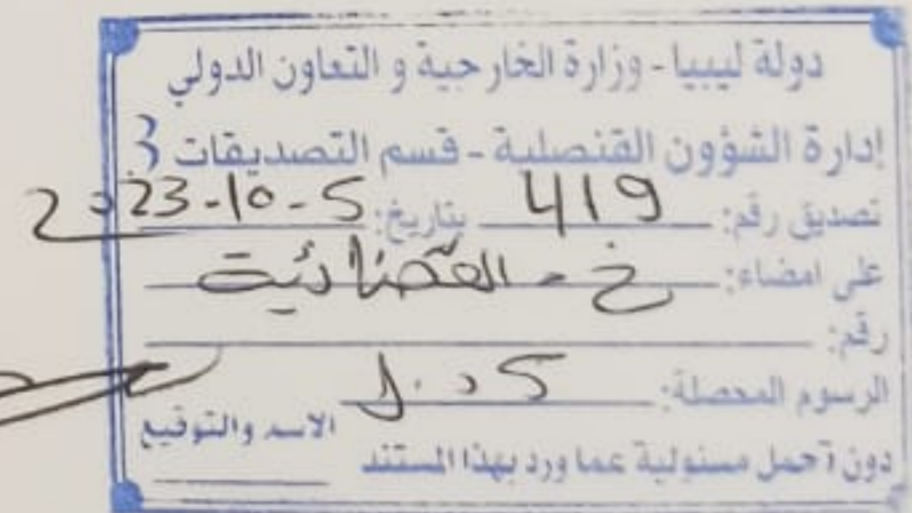 دولة ليبيا - وزارة الخارجية و التعاون الدولي
إدارة الشؤون القنصلية - قسم التصديقات 3
تصديق رقم: 419 بتاريخ: 2023-10-5
على امضاء: خ - القضائية
رقم:
الرسوم المحصلة: 5 د.ل
الاسم والتوقيع
دون تحمل مسئولية عما ورد بهذا المستند